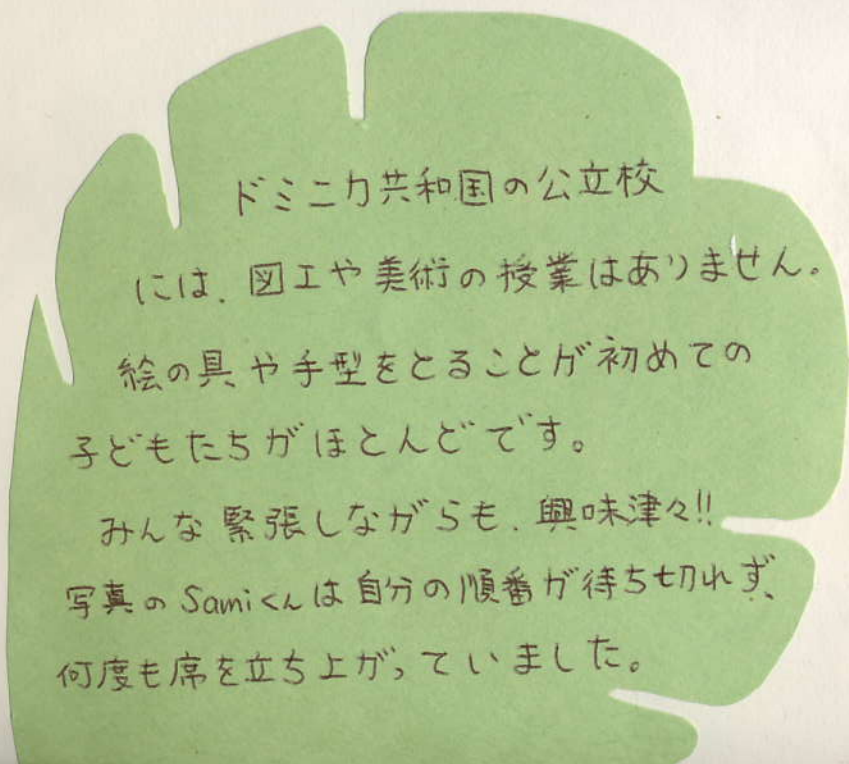 ドミニカ共和国の公立校
には、図工や美術の授業はありません。
絵の具や手型をとることが初めての
子どもたちがほとんどです。
みんな緊張しながらも、興味津々!!
写真のSamiくんは自分の順番が待ち切れず、
何度も席を立ち上がっていました。